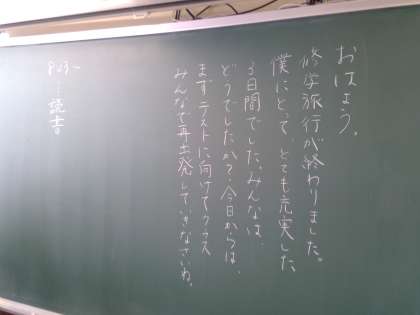 おはよう。
修学旅行が終わりました。
僕にとって、とても充実した
3日間でした。みんなは
どうでしたか？今日からは、
まずテストに向けてクラス
みんなで再出発していきなさいね。
8:25～…読書